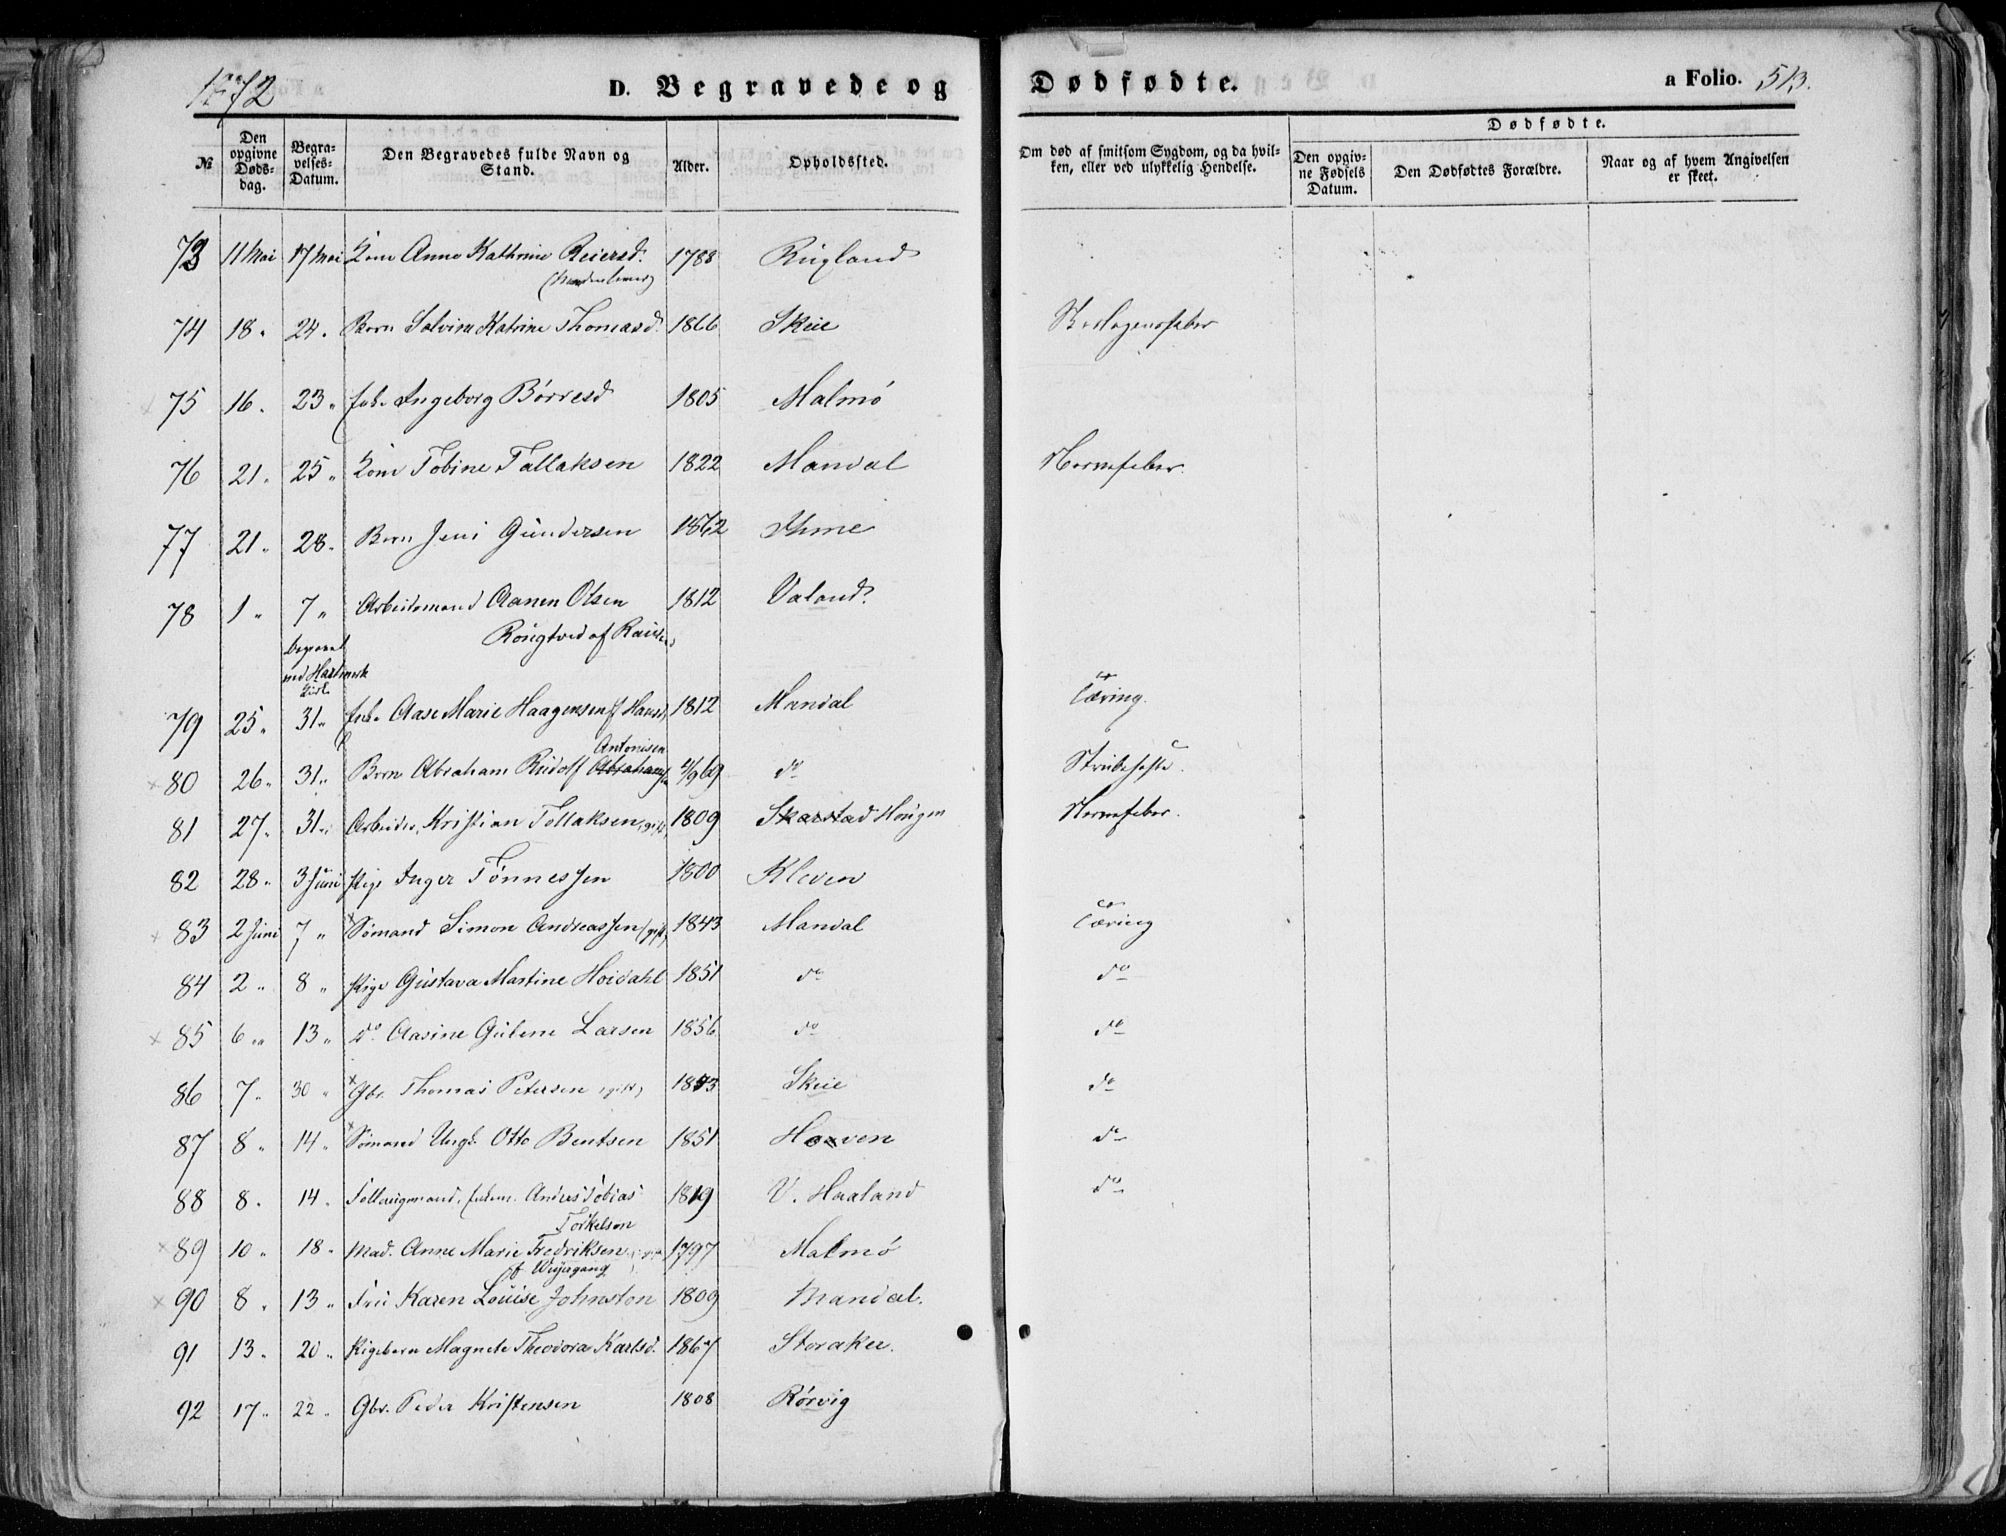 1872 D. Begravede og Dødfødte. a Folio. 513.
Dødfødte.
№ Den opgivne Døds-dag. Begra-velses-Datum. Den Begravedes fulde Navn og Stand. Alder. Opholdssted. Om død af smitsom Sygdom, og da hvil-ken, eller ved ulykkelig Hendelse. Den opgiv-ne Fødsels Datum. Den Dødfødtes Forældre. Naar og af hvem Angivelsen er skeet.
73 11 Mai 17 Mai Kone Anne Kathrine Reiersd. 1788 Rugland
74 18 " 24 " Barn Salvine Katrine Thomasd. 1866 Skeie Skarlagensfeber
75 16 " 23 " Enke Ingeborg Børresd 1805 Malmø
76 21 " 25 " Kone Tobine Tallaksen 1822 Mandal Nervefeber.
77 21 " 28 " Barn Jens Gundersen 1862 Ihme
78 1 " 7 " Arbeidsmand Aanen Olsen 1812 Valand.
Røngtved af
begravet
ved Hartmark
Kirke
79 25 " 31 " Enke Aase Marie Haagensen f Hansd. 1812 Mandal Tæring.
Antonisen
80 26 " 31 " Barn Abraham Rudolf Abrahamsen 4/9 69 do Strubehoste.
81 27 " 31 " Arbeider, Kristian Tallaksen, gift, 1809 Skarstad Hougen Nervefeber.
82 28 " 3 Juni Pige Inger Tønnessen 1800 Kleven
83 2 Juni 7 " Sømand Simon Andreassen (gift) 1843 Mandal Tæring
84 2 " 8 " Pige Gustava Martine Hoidahl 1851 do do
85 6 " 13 " do. Aasine Guline Larsen 1856 do do
86 7 " 30 " Gbr. Thomas Petersen (gift) 1843 Skeie do
87 8 " 14 " Sømand Ungk. Otto Bentsen 1851 Haven do
88 8 " 14 " Føllaugsmand, Enkem. Andres Tobias 1819 V. Haaland do
Torkelsen
89 10 " 18 " Mad. Anne Marie Fredriksen 1797 Malmø
f. Weyergang
90 8 " 13 " Fru Karen Louise Johnston 1809 Mandal.
91 13 " 20 " Pigebarn Magnete Theodora Karlsd. 1867 Storaker.
92 17 " 22 " Gbr. Peder Kristensen 1808 Rørvig